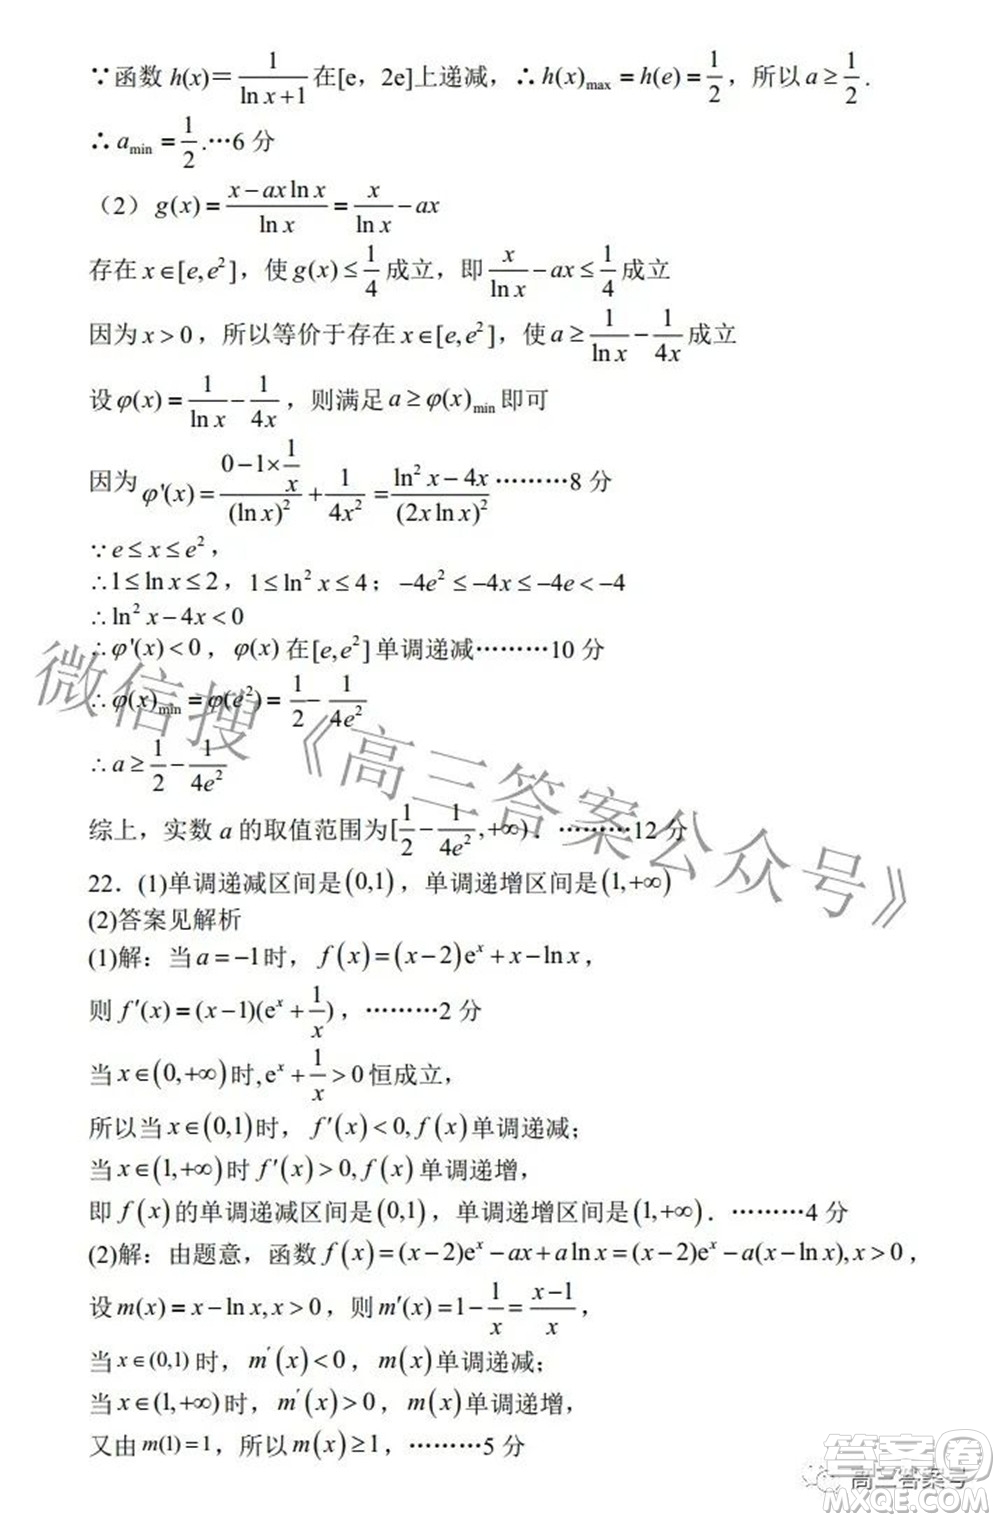 ∵函数 h(x)=1/(ln x+1) 在[e，2e]上递减，∴h(x)max=h(e)=1/2，所以 a≥1/2.
∴a_min=1/2.…6 分
（2）g(x)=(x-ax ln x)/ln x=x/ln x-ax
存在 x∈[e,e²]，使 g(x)≤1/4 成立，即 x/ln x-ax≤1/4 成立
因为 x>0，所以等价于存在 x∈[e,e²]，使 a≥1/ln x-1/4x 成立
设 φ(x)=1/ln x-1/4x，则满足 a≥φ(x)min 即可
因为 φ'(x)=(0-1×1/x)/(ln x)²+1/4x²=(ln²x-4x)/(2x ln x)²………8 分
∵e≤x≤e²，
∴1≤ln x≤2，1≤ln²x≤4；-4e²≤-4x≤-4e<-4
∴ln²x-4x<0
∴φ'(x)<0，φ(x)在[e,e²]单调递减………10 分
∴φ(x)min=φ(e²)=1/2-1/4e²
∴a≥1/2-1/4e²
综上，实数 a 的取值范围为[1/2-1/4e²,+∞)．………12 分
22．(1)单调递减区间是(0,1)，单调递增区间是(1,+∞)
(2)答案见解析
(1)解：当 a=-1时，f(x)=(x-2)eˣ+x-ln x，
则 f′(x)=(x-1)(eˣ+1/x)，………2 分
当 x∈(0,+∞)时,eˣ+1/x>0 恒成立，
所以当 x∈(0,1)时，f′(x)<0,f(x)单调递减；
当 x∈(1,+∞)时 f′(x)>0,f(x)单调递增，
即 f(x)的单调递减区间是(0,1)，单调递增区间是(1,+∞)．………4 分
(2)解：由题意，函数 f(x)=(x-2)eˣ-ax+a ln x=(x-2)eˣ-a(x-ln x),x>0，
设 m(x)=x-ln x,x>0，则 m′(x)=1-1/x=(x-1)/x，
当 x∈(0,1)时，m′(x)<0，m(x)单调递减；
当 x∈(1,+∞)时，m′(x)>0，m(x)单调递增，
又由 m(1)=1，所以 m(x)≥1，………5 分
微信搜《高三答案公众号》
高三答案号
答案圈
MXQE.COM